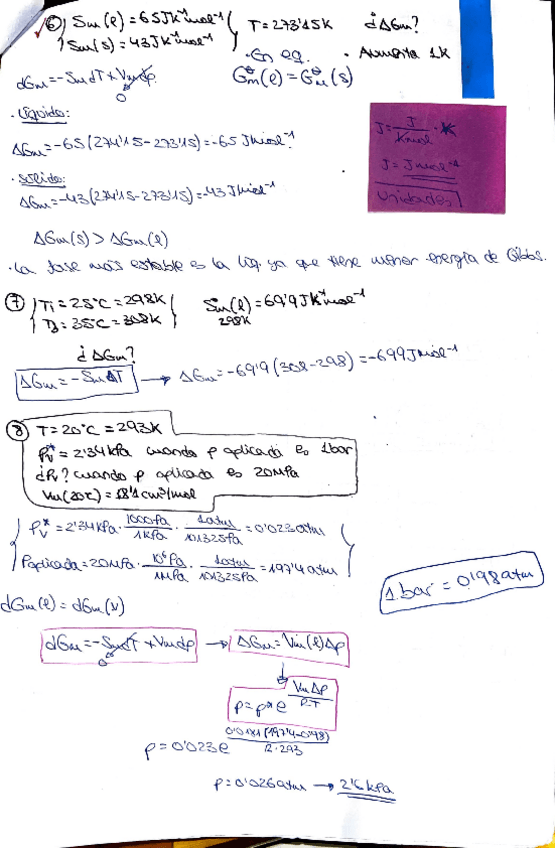 ⑥ Sm(l) = 65 JK⁻¹mol⁻¹
Sm(s) = 43 JK⁻¹mol⁻¹
T = 273'15K
¿ΔGm?
· En eq.
· Aumenta 1K
dGm = -SmdT + Vmdp
0
Gm(l) = Gm(s)
· Líquido:
ΔGm = -65(274'15-273'15) = -65 Jmol⁻¹
· Sólido:
ΔGm = -43(274'15-273'15) = -43 Jmol⁻¹
J = J/Kmol · K
J = Jmol⁻¹
Unidades
ΔGm(s) > ΔGm(l)
· La fase más estable es la líq. ya que tiene menor energía de Gibbs.
⑦ T1 = 25°C = 298K
T2 = 35°C = 308K
Sm(l) = 69'9 JK⁻¹mol⁻¹
298K
¿ΔGm?
ΔGm = -SmΔT → ΔGm = -69'9(308-298) = -699 Jmol⁻¹
⑧ T = 20°C = 293K
Pv* = 2'34 kPa cuando p aplicada es 1bar
¿Pv? cuando p aplicada es 20MPa
Vm(20°C) = 18'1 cm³/mol
Pv* = 2'34kPa · 1000Pa/1kPa · 1atm/101325Pa = 0'023 atm
Paplicada = 20MPa · 10⁶Pa/1MPa · 1atm/101325Pa = 197'4 atm
1 bar = 0'98 atm
dGm(l) = dGm(v)
dGm = -SmdT + Vmdp → ΔGm = Vm(l)Δp
0
p = p* e^(VmΔp/R·T)
p = 0'023e^(0'0181(197'4-0'98)/R·293)
p = 0'026 atm → 2'6 kPa